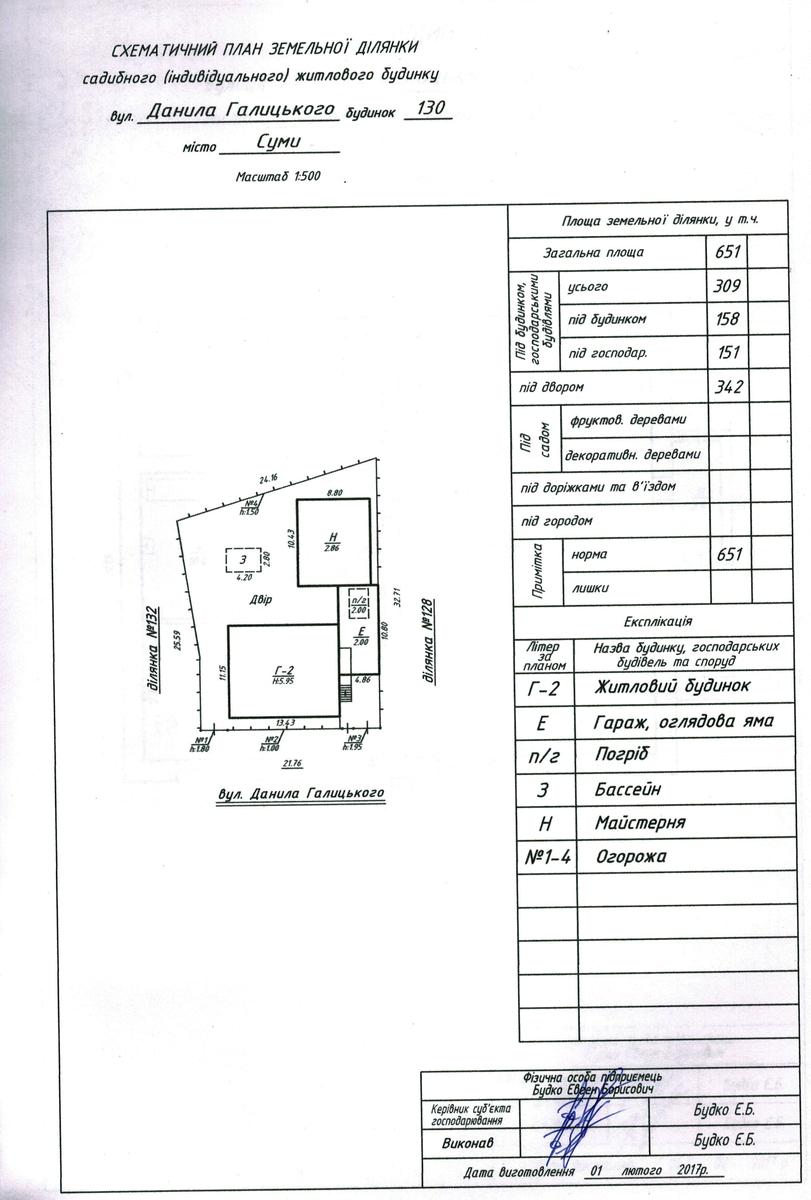 СХЕМАТИЧНИЙ ПЛАН ЗЕМЕЛЬНОЇ ДІЛЯНКИ
садибного (індивідуального) житлового будинку
вул. Данила Галицького будинок 130
місто Суми
Масштаб 1:500
Площа земельної ділянки, у т.ч.
Загальна площа 651
Під будинком, господарськими будівлями
усього 309
під будинком 158
під господар. 151
під двором 342
Під садом
фруктов. деревами
декоративн. деревами
під доріжками та в'їздом
під городом
Примітка
норма 651
лишки
Експлікація
Літер за планом
Назва будинку, господарських будівель та споруд
Г-2 Житловий будинок
Е Гараж, оглядова яма
п/г Погріб
З Бассейн
Н Майстерня
№1-4 Огорожа
24.16
№4
h:1.50
8.80
10.43
Н
2.86
З
2.80
4.20
Двір
п/г
2.00
Е
2.00
10.80
32.71
ділянка №132
25.59
ділянка №128
11.15
Г-2
Н:5.95
4.86
13.43
№1
h:1.80
№2
h:1.00
№3
h:1.95
21.76
вул. Данила Галицького
Фізична особа підприємець
Будко Евген Борисович
Керівник суб'єкта господарювання
Будко Е.Б.
Виконав
Будко Е.Б.
Дата виготовлення 01 лютого 2017р.